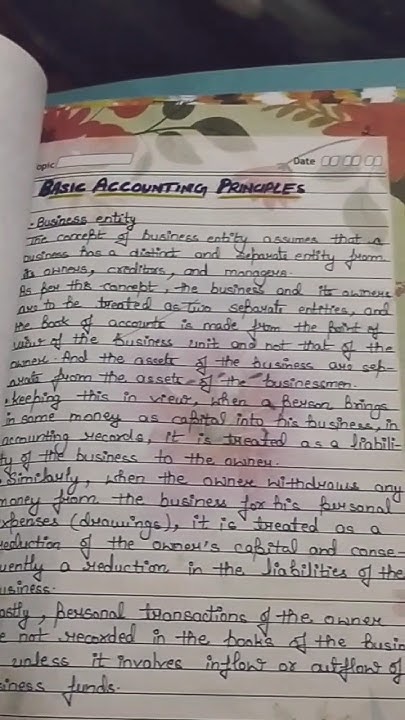 opic:
Date
BASIC ACCOUNTING PRINCIPLES
• Business entity
The concept of business entity assumes that a
business has a distint and separate entity from
its owners, creditors, and managers.
As per this concept, the business and its owners
are to be treated as two separate entities, and
the book of accounts is made from the point of
view of the business unit and not that of the
owner. And the assets of the business are sep-
arate from the assets of the businessmen.
• keeping this in view, when a person brings
in some money as capital into his business, in
accounting records, it is treated as a liabili-
ty of the business to the owner.
• Similarly, when the owner withdraws any
money from the business for his personal
expenses (drawings), it is treated as a
reduction of the owner's capital and conse-
quently a reduction in the liabilities of the
usiness.
astly, personal transactions of the owner
e not recorded in the books of the busin
unless it involves inflow or outflow of
siness funds.